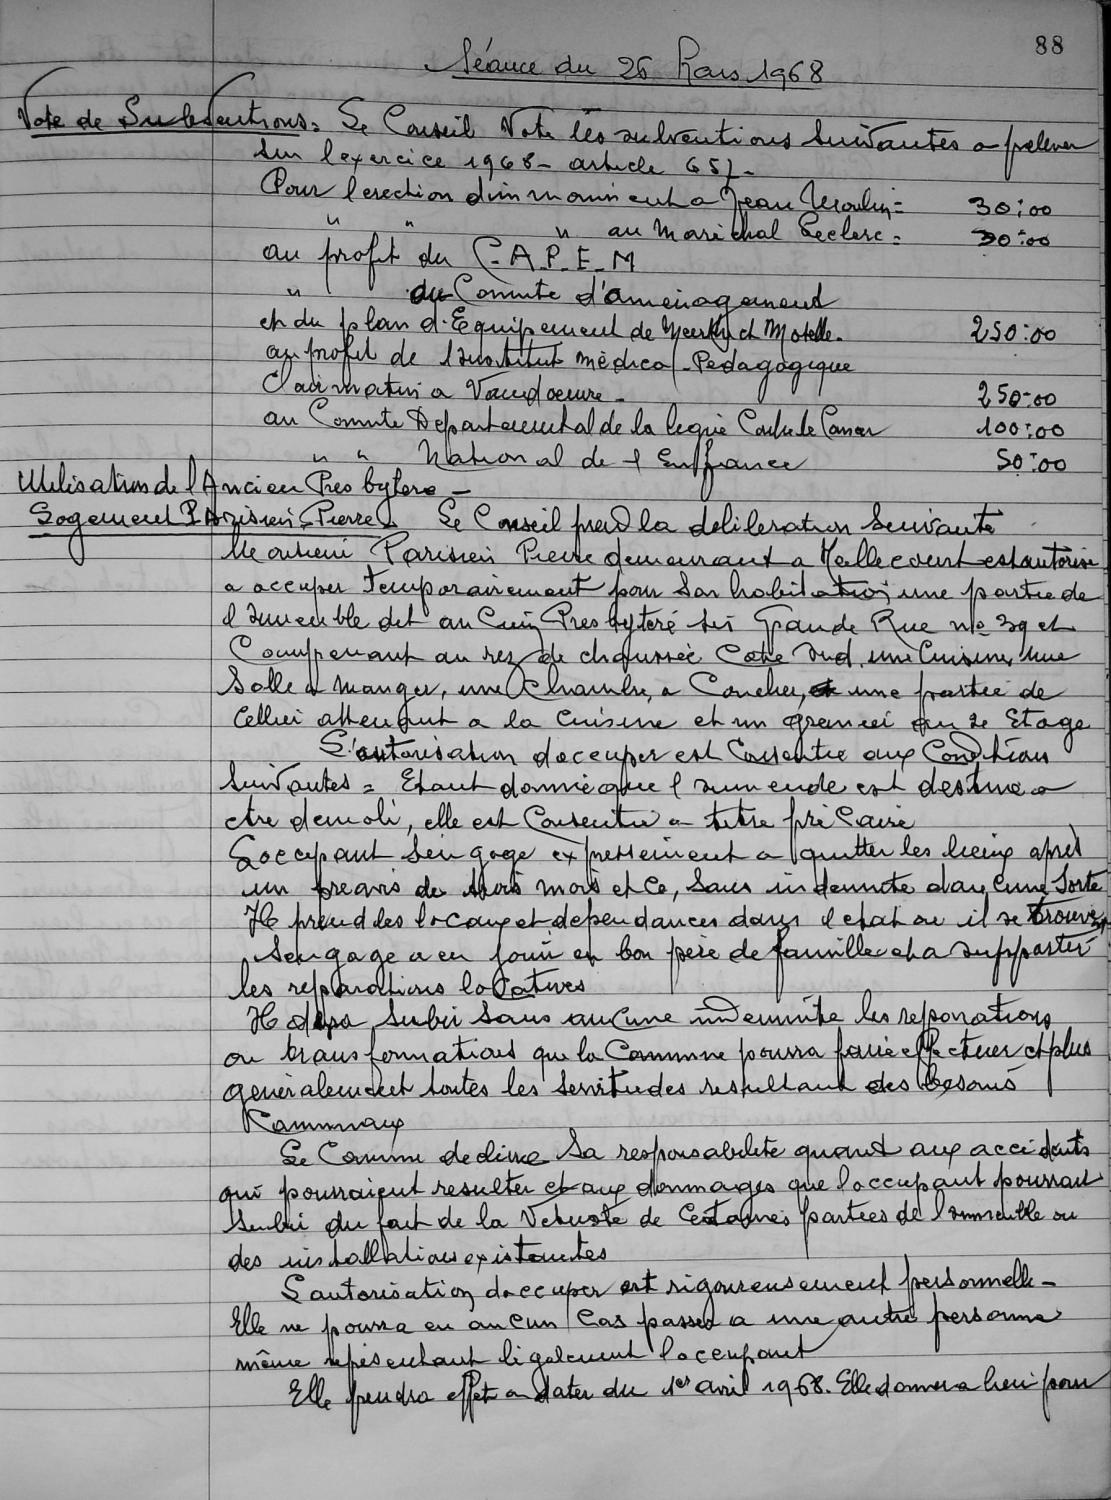 88
Séance du 26 Mars 1968
Vote de Subventions = Le Conseil Vote les subventions suivantes a prelever
sur l exercice 1968 - article 657 -
Pour l erection d'un monument a Jean Moulin = 30:00
" " " au Maréchal Leclerc = 30:00
au profit du C.A.P.E.M
" du Comite d'amenagement
et du plan d'Equipement de Meurthe et Moselle. 250:00
au profit de l institut médico-Pedagogique
Clairmatin a Vandoeuvre - 250-00
au Comite Departemental de la ligue Contre le Cancer 100:00
" " National de l Enffance 50:00
Utilisation de l Ancien Presbytere -
Logement PArisien Pierre. Le Conseil prend la deliberation suivante
Monsieur Parisien Pierre demeurant a est autorise
a occuper temporairement pour son habitation une partie de
l immeuble dit ancien Presbyteré sis Grande Rue no 39 et
Comprenant au rez de chaussée Coté Sud, une Cuisine, une
Salle a manger, une chambre, a Coucher, une partie de
Cellier attenant a la Cuisine et un grenier au 2e Etage
L'autorisation doccuper est Consentie aux Conditions
Suivantes = Etant donnié que l immeuble est destine a
etre demoli, elle est Consentie a titre précaire
Loccupant sengage expressement a quitter les lieux aprés
un preavis de trois mois et Ce, Sans indemnite d'aucune Sorte
Il prend les locaux et dependances dans l etat ou il se trouve
Sengage a en jouir en bon pére de famille et a supporter
les reparations locatives
Il devra subir Sans aucune indemnite les reparations
ou transformations que la Commune pourra faire effectuer et plus
generalement toutes les servitudes resultant des besoins
Kommunaux
Le Commune decline Sa responsabilite quant aux accidents
qui pourraient resulter et aux dommages que loccupant pourrait
Subir du fait de la Vetusté de Certaines parties de l immeuble ou
des installations existantes
L autorisation doccuper est rigoureusement personnelle -
Elle ne pourra en aucun Cas passer a une autre personne
même représentant legalement loccupant
Elle prendra effet a dater du 1er avril 1968. Elle donnera lieu pour